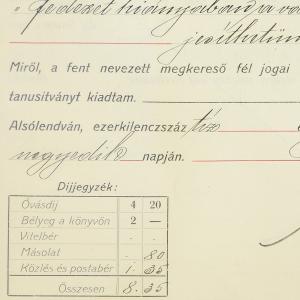 fedezet hiányában a
Miről, a fent nevezett megkereső fél jogai
tanusitványt kiadtam.
Alsólendván, ezerkilenczszáz tíz
negyedik napján.
Díjjegyzék:
Óvásdíj 4 20
Bélyeg a könyvön 2 —
Vitelbér . .
Másolat . 80
Közlés és postabér 1. 35
Összesen 8. 35